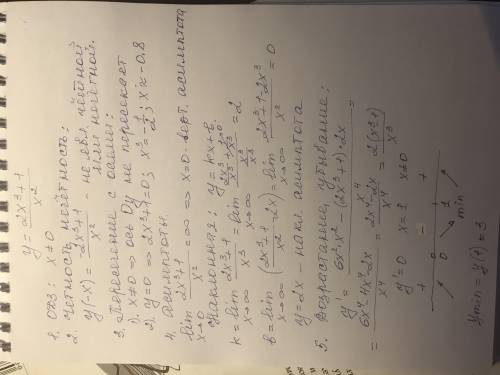 y = (2x³+1)/x²
1. ОХЗ: x≠0
2. Четность, нечётность:
y(-x) = (-2x³+1)/x² - не явл. чётной
или нечётной.
3. Пересечение с осями:
1). x≠0 ⇒ ось Oy не пересекает
2). y=0 ⇒ 2x³+1=0; x³=-1/2; x≈-0.8
4. Асимптоты.
lim x→0 (2x³+1)/x² = ∞ ⇒ x=0 - верт. асимптота
Наклонная: y=kx+b.
k = lim x→∞ (2x³+1)/x³ = lim x→∞ (2x³/x³ + 1/x³)/(x³/x³) = 2
b = lim x→∞ ((2x³+1)/x² - 2x) = lim x→∞ (2x³+1-2x³)/x² = 0
y=2x - накл. асимптота
5. Возрастание, убывание:
y' = (6x²·x² - (2x³+1)·2x)/x⁴ =
= (6x⁴-4x⁴-2x)/x⁴ = (2x⁴-2x)/x⁴ = 2(x³-1)/x³
y'=0 x=1 x≠0
+ - +
0 1
min
ymin = y(1) = 3